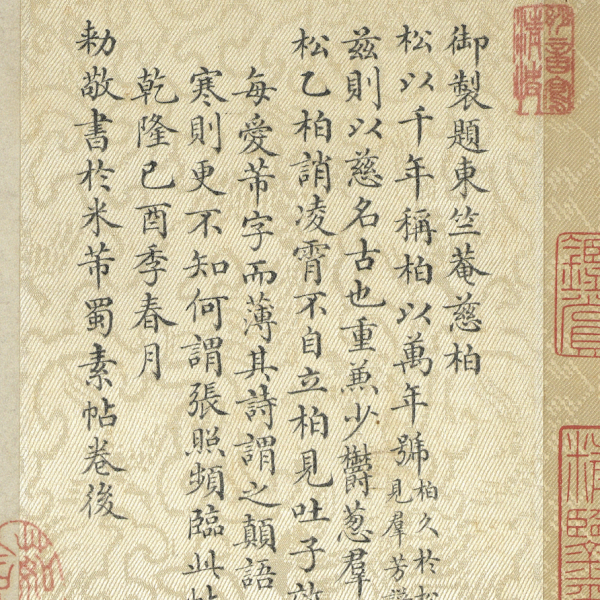 御製題東竺菴慈柏
松以千年稱柏以萬年號
柏久於松
見羣芳譜
茲則以慈名古也重兼少鬱蔥羣
松乙柏誚凌霄不自立柏見吐子效
每愛芾字而薄其詩謂之顛語
寒則更不知何謂張照頻臨此帖
乾隆己酉季春月
勅敬書於米芾蜀素帖卷後